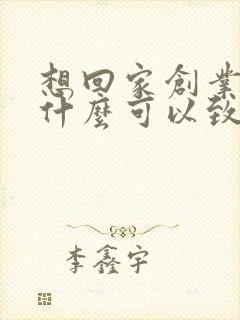 想回家創業
什麼可以致
李鑫宇